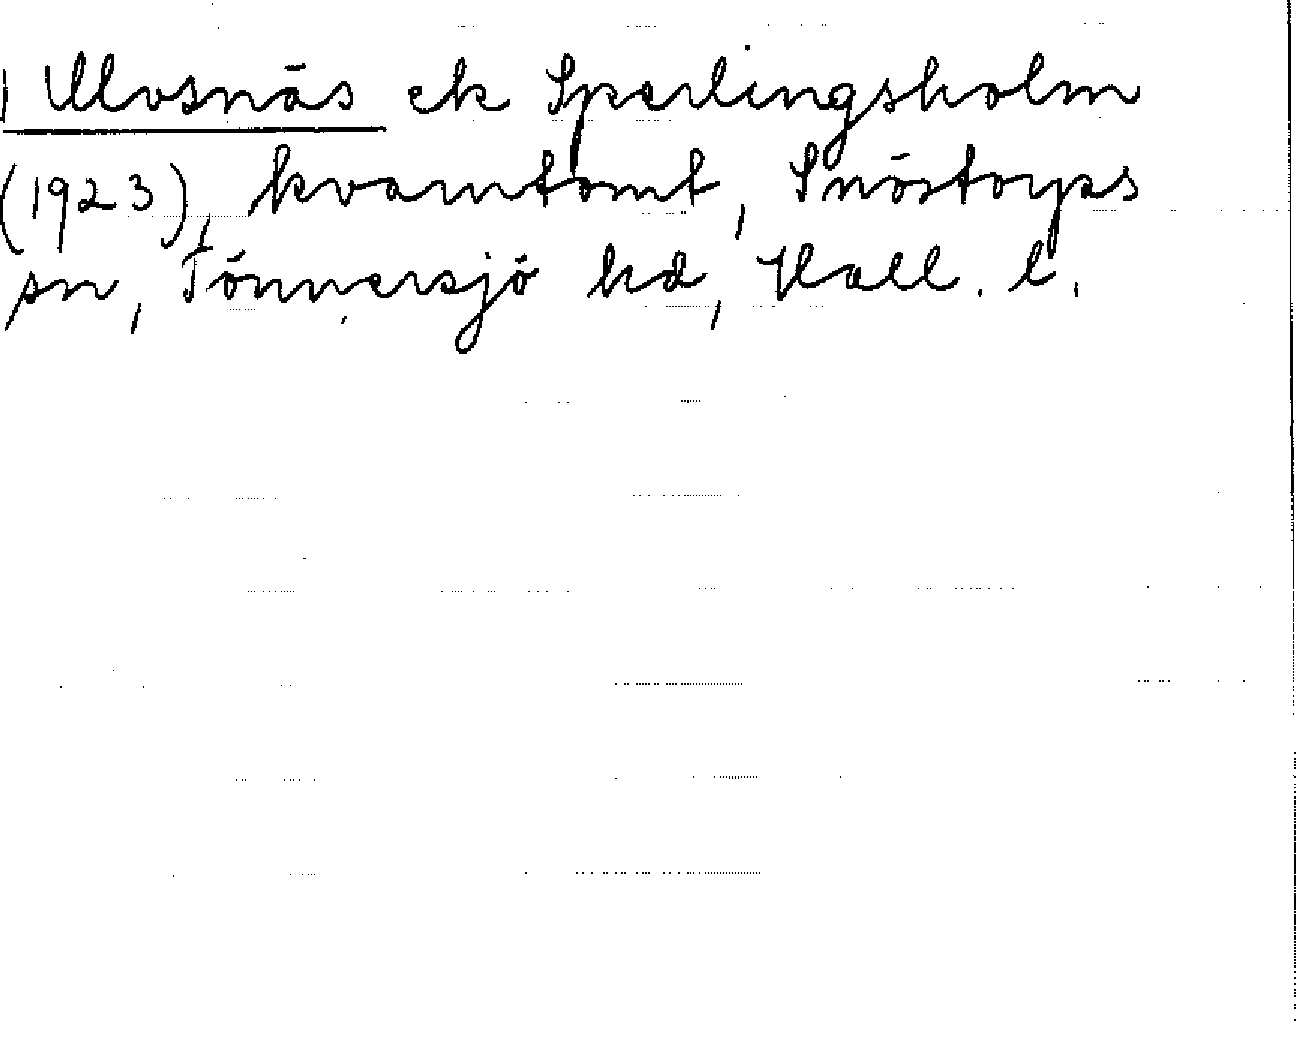 Ulvsnäs ek Sperlingsholm
(1923), kvarntomt, Snöstorps
sn, Tönnersjö hd, Hall. l.